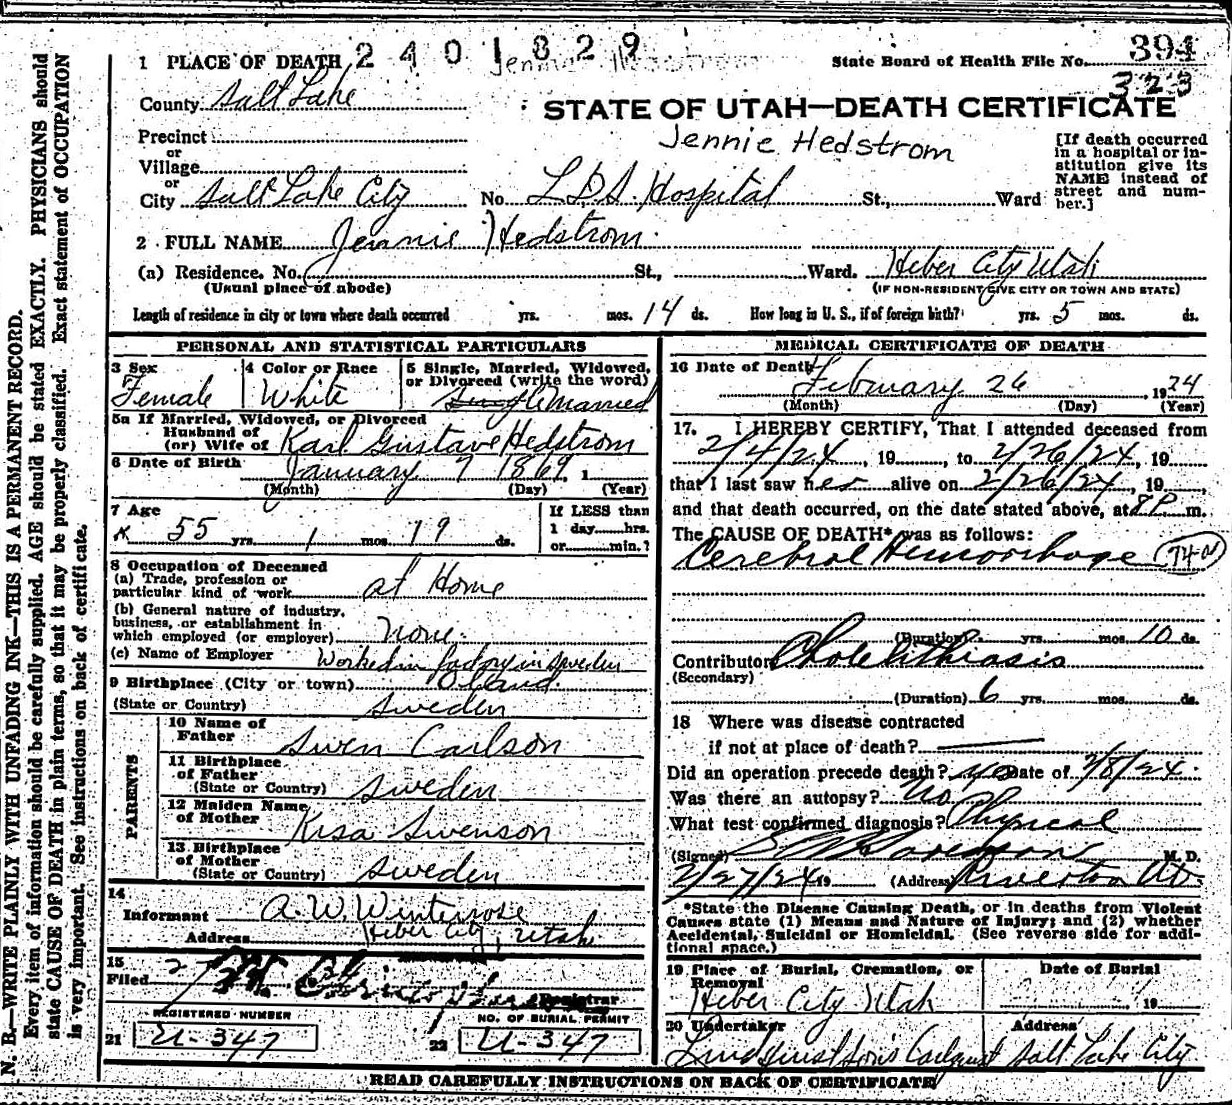 2401829
Jennie Hedstrom
State Board of Health File No. 394
323
1 PLACE OF DEATH
County Salt Lake
STATE OF UTAH—DEATH CERTIFICATE
Precinct
or
Village
or
City Salt Lake City No. L.D.S. Hospital St., Ward
Jennie Hedstrom
[If death occurred
in a hospital or in-
stitution give its
NAME instead of
street and num-
ber.]
2 FULL NAME Jennie Hedstrom
(a) Residence. No. St., Ward. Heber City Utah
(Usual place of abode) (IF NON-RESIDENT GIVE CITY OR TOWN AND STATE)
Length of residence in city or town where death occurred yrs. mos. 14 ds. How long in U. S., if of foreign birth? yrs. 5 mos. ds.
PERSONAL AND STATISTICAL PARTICULARS
3 Sex
Female
4 Color or Race
White
5 Single, Married, Widowed,
or Divorced (write the word)
Married
5a If Married, Widowed, or Divorced
Husband of
(or) Wife of Karl Gustave Hedstrom
6 Date of Birth January 7 1869, 1
(Month) (Day) (Year)
7 Age
55 yrs. 1 mos. 19 ds.
If LESS than
1 day hrs.
or min.?
8 Occupation of Deceased
(a) Trade, profession or
particular kind of work at Home
(b) General nature of industry,
business, or establishment in
which employed (or employer) none.
(c) Name of Employer Worked in factory in Sweden
9 Birthplace (City or town) Oland.
(State or Country) Sweden
PARENTS
10 Name of
Father Swen Carlson
11 Birthplace
of Father
(State or Country) Sweden
12 Maiden Name
of Mother Kisa Swenson
13 Birthplace
of Mother
(State or Country) Sweden
14
Informant A. W. Winterrose
Address Heber City, Utah
15
Filed
Registrar
REGISTERED NUMBER
21 U-347
NO. OF BURIAL PERMIT
22 U-347
MEDICAL CERTIFICATE OF DEATH
16 Date of Death February 26, 1924
(Month) (Day) (Year)
17. I HEREBY CERTIFY, That I attended deceased from
2/4/24, 19, to 2/26/24, 19
that I last saw her alive on 2/26/24, 19,
and that death occurred, on the date stated above, at 8 P. m.
The CAUSE OF DEATH* was as follows:
Cerebral Hemorrhage 74-a
(Duration) yrs. mos. 10 ds.
Contributory Cholelithiasis
(Secondary)
(Duration) 6 yrs. mos. ds.
18 Where was disease contracted
if not at place of death?
Did an operation precede death? yes Date of 2/8/24.
Was there an autopsy? No
What test confirmed diagnosis? Physical
(Signed) M. D.
2/27/24 19 (Address) Riverton Ut.
*State the Disease Causing Death, or in deaths from Violent
Causes state (1) Means and Nature of Injury; and (2) whether
Accidental, Suicidal or Homicidal. (See reverse side for addi-
tional space.)
19 Place of Burial, Cremation, or
Removal
Heber City Utah
Date of Burial
19
20 Undertaker
Address
Salt Lake City
READ CAREFULLY INSTRUCTIONS ON BACK OF CERTIFICATE
N. B.—WRITE PLAINLY WITH UNFADING INK—THIS IS A PERMANENT RECORD.
Every item of information should be carefully supplied. AGE should be stated EXACTLY. PHYSICIANS should
state CAUSE OF DEATH in plain terms, so that it may be properly classified. Exact statement of OCCUPATION
is very important. See instructions on back of certificate.